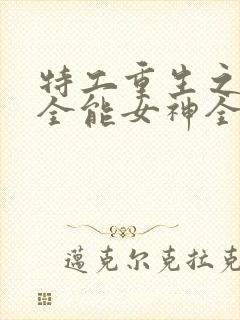 特工重生之
全能女神全
邁克尔克拉克